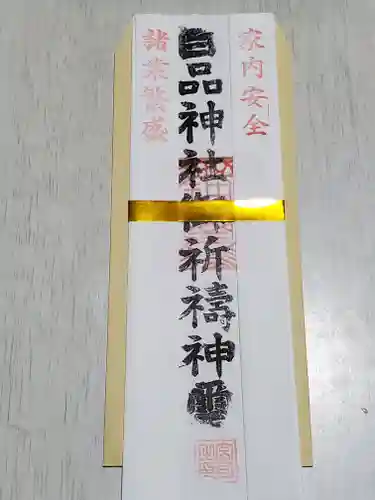 家内安全
品神社御祈祷神璽
諸業繁盛